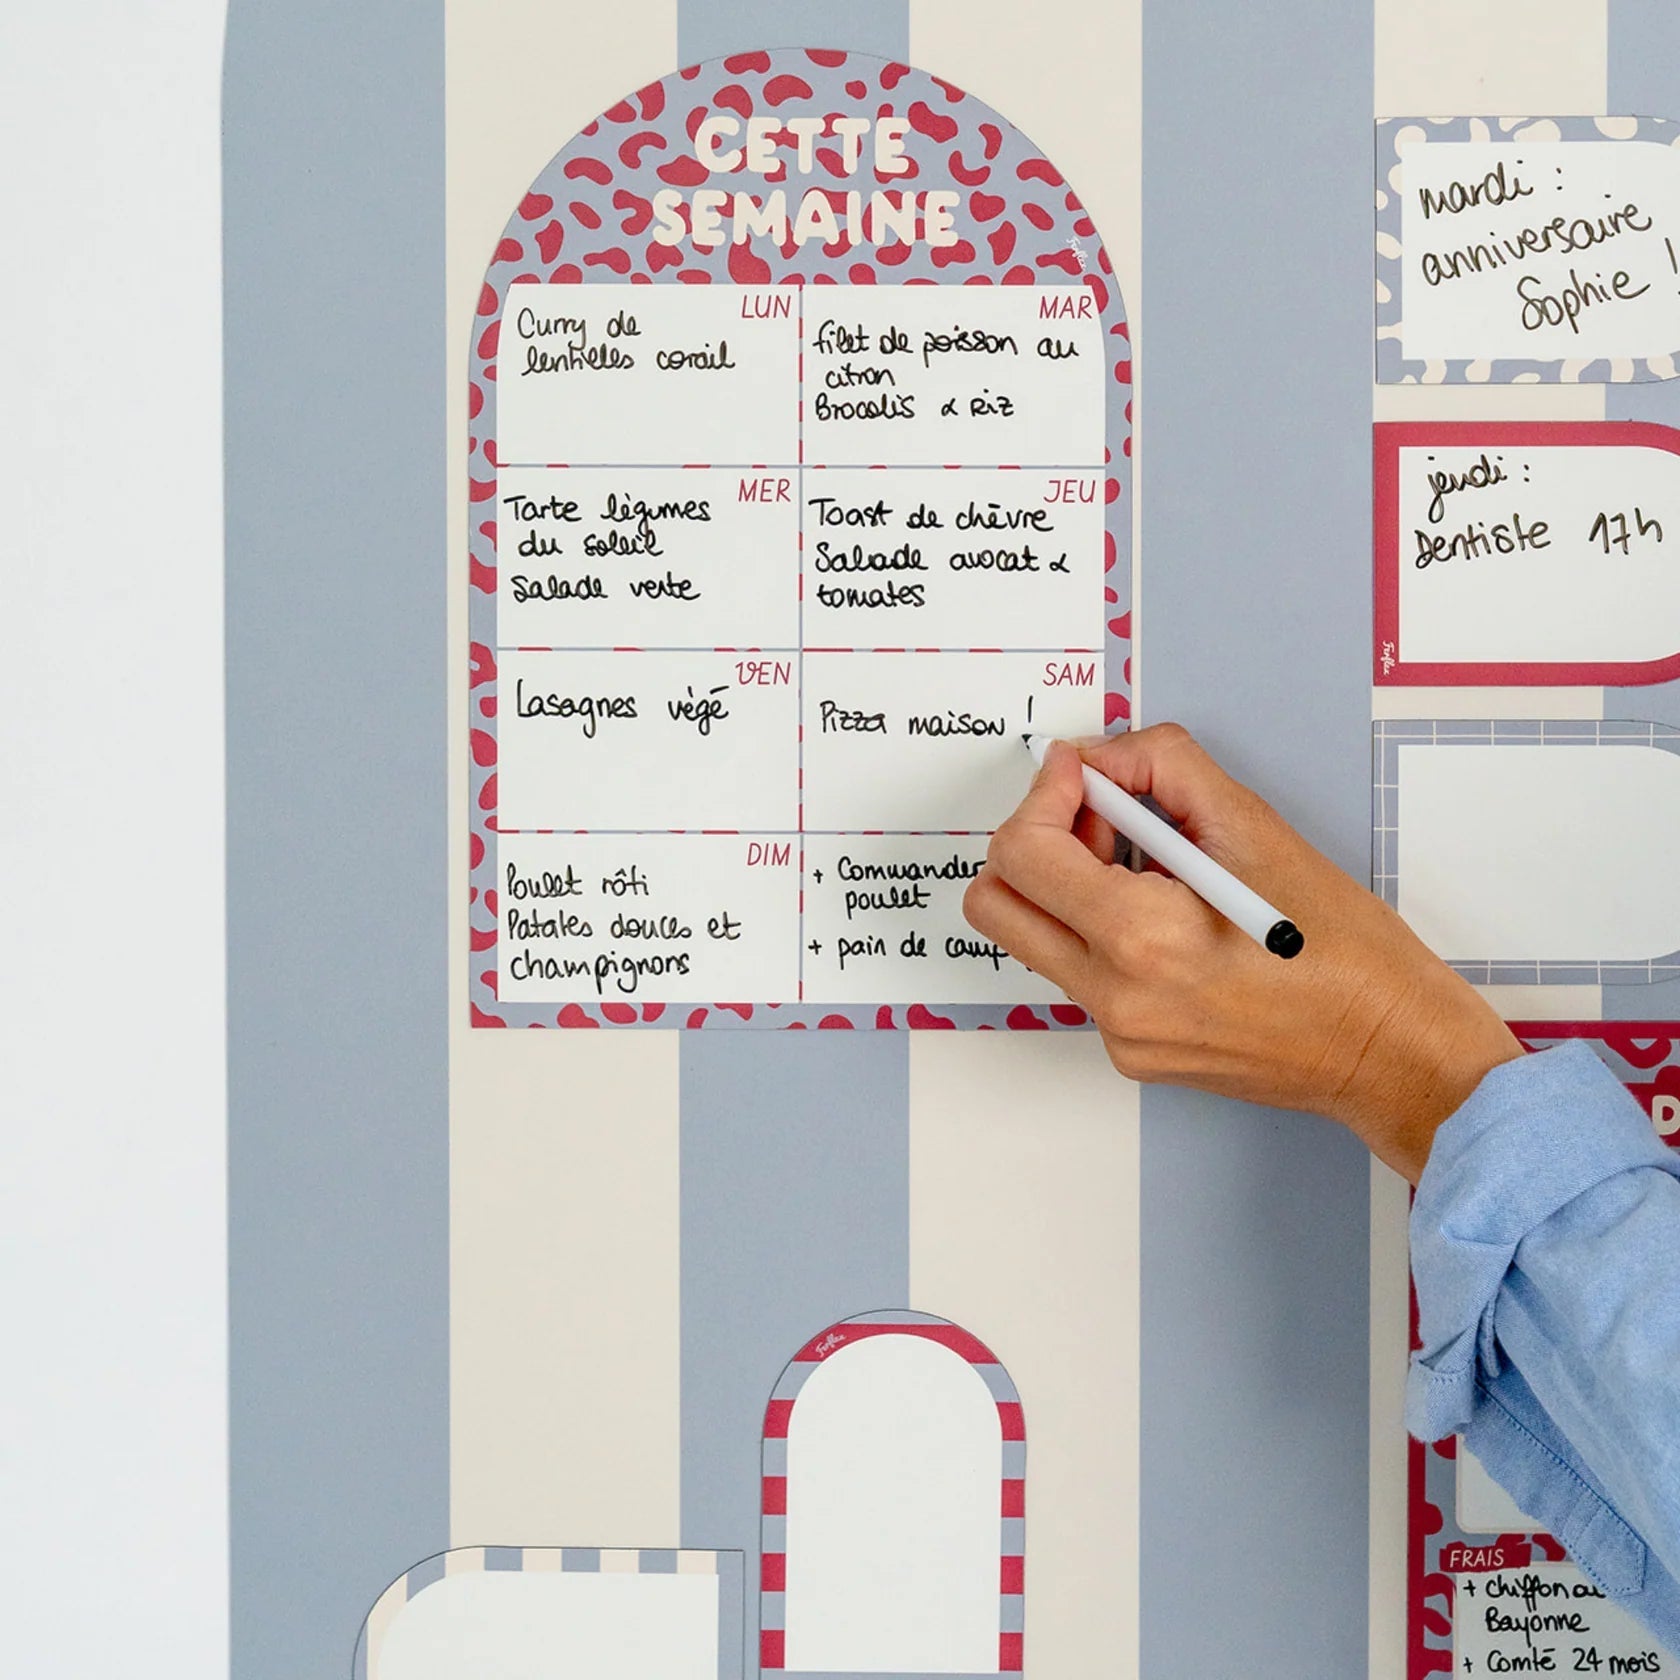 CETTE
SEMAINE
LUN
Curry de
lentilles corail
MAR
filet de poisson au
citron
Brocolis & Riz
MER
Tarte légumes
du soleil
Salade verte
JEU
Toast de chèvre
Salade avocat &
tomates
VEN
Lasagnes végé
SAM
Pizza maison !
DIM
Poulet rôti
Patates douces et
champignons
+ Commander
poulet
+ pain de
mardi :
anniversaire
Sophie !
jeudi :
Dentiste 17h
Ferflex
D
FRAIS
+ chiffonna
Bayonne
+ Comté 24 mois